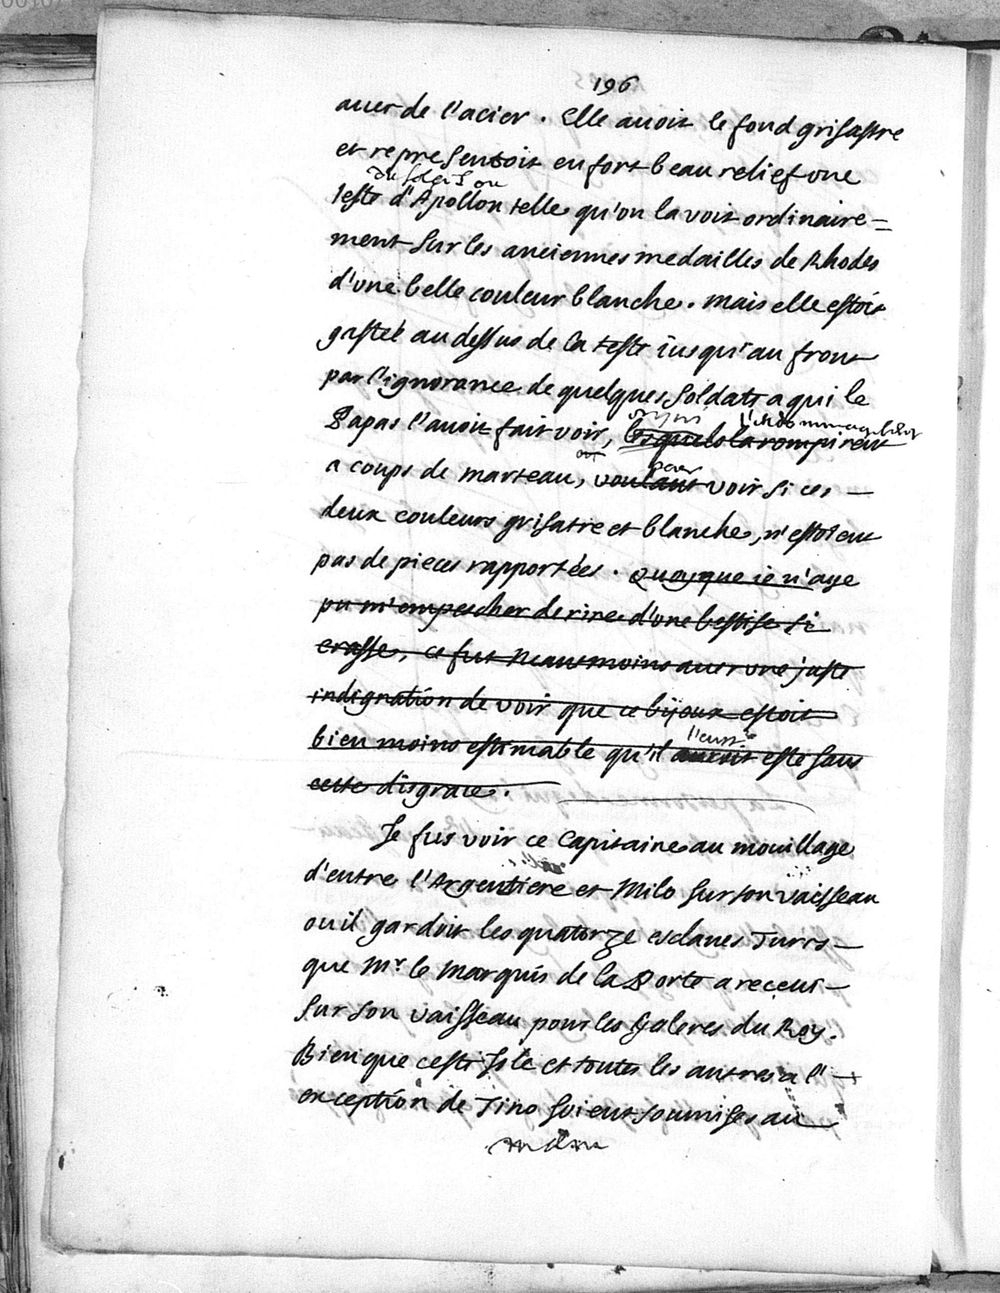 196
auec de l'acier. Elle auoit le fond grisastre
et representoit en fort beau relief une
du soleil ou
teste d'Apollon telle qu'on la voit ordinaire=
ment sur les anciennes medailles de Rhodes
d'une belle couleur blanche. mais elle estoit
gastée au dessus de la teste iusqu'au front
par l'ignorance de quelques soldats a qui le
Papas l'auoit fait voir, lesquels la rompirent
a coups de marteau, voulant voir si ces
pour
deux couleurs grisatre et blanche, n'estoient
pas de pieces rapportées. Quoyque ie n'aye
pu m'empescher de rire d'une bestise si
crasse, ce fut neantmoins auec une juste
indignation de voir que ce bijoux estoit
bien moins estimable qu'il auroit esté sans
l'eust
cette disgrace.
Je fus voir ce Capitaine au mouillage
d'entre l'Argentiere et Milo sur son vaisseau
ou il gardoit les quatorze esclaues Turcs
que Mr. le Marquis de la Porte a receus
sur son vaisseau pour les Galeres du Roy.
Bien que ceste Isle et toutes les autres a l'
exception de Tino soient soumises au